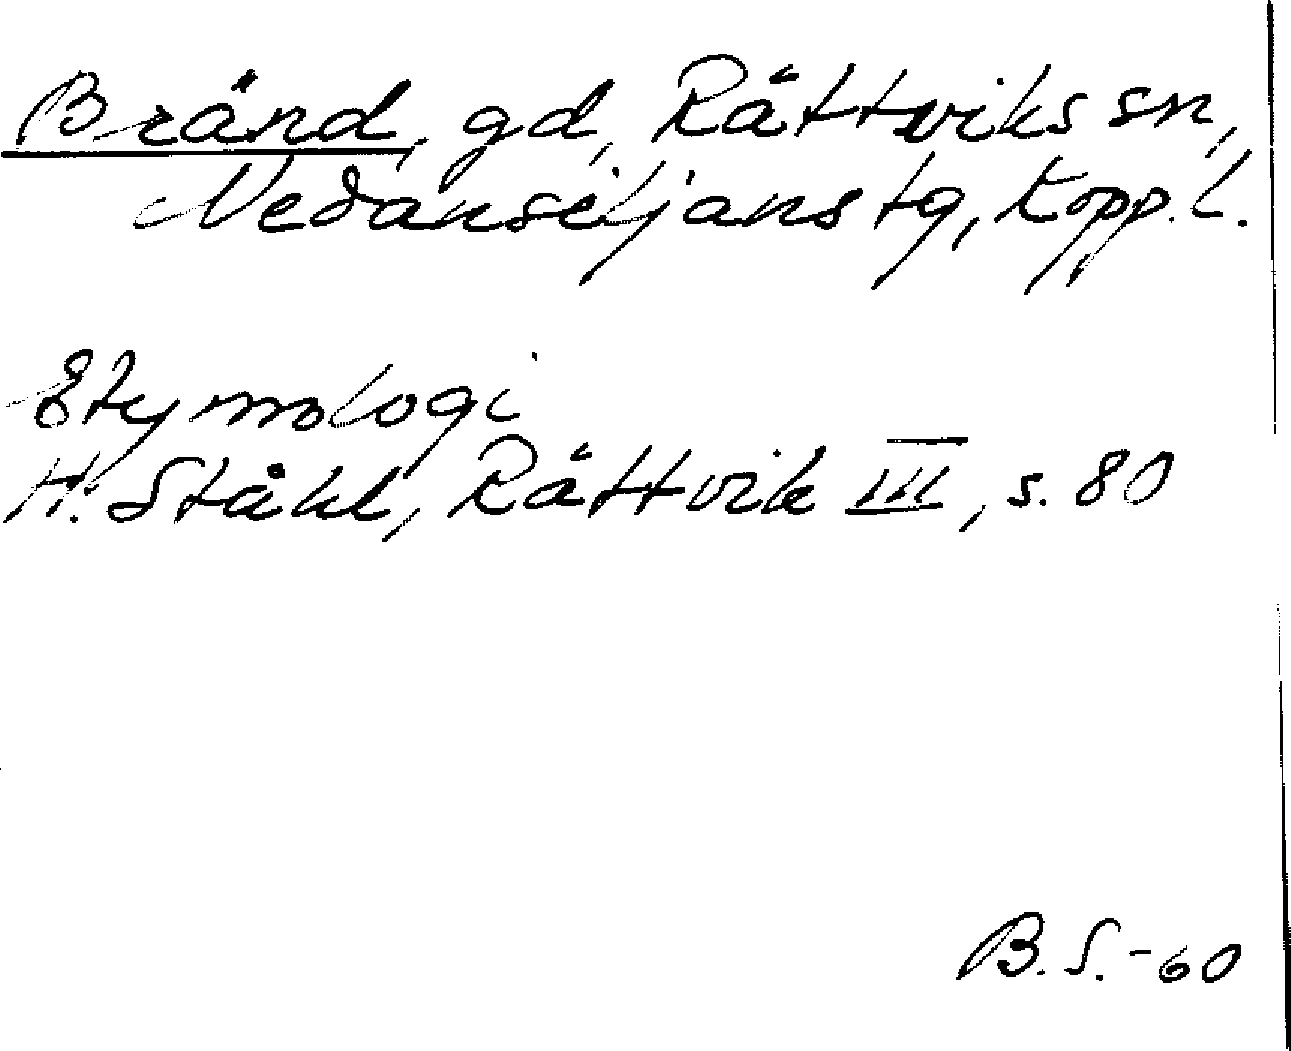 Bränd, gd, Rättviks sn,
Nedansiljans tg, Kopp. l.
Etymologi
H. Ståhl, Rättvik III, s. 80
B.S. -60